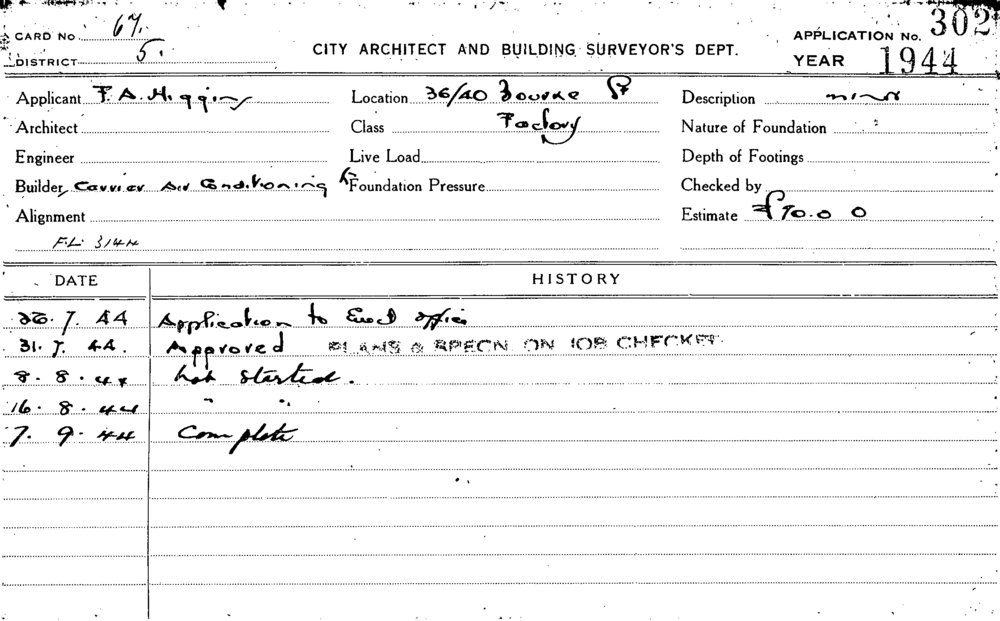 CARD No 67. CITY ARCHITECT AND BUILDING SURVEYOR'S DEPT. APPLICATION No. 302
DISTRICT 5. YEAR 1944
Applicant F. A. Higgins Location 36/40 Bourke St Description minor
Architect Class Factory Nature of Foundation
Engineer Live Load Depth of Footings
Builder Carrier Air Conditioning Foundation Pressure Checked by
Alignment Estimate £90.0 0
F.L. 3144
DATE HISTORY
26. 7. 44 Application to Erect office
31. 7. 44. Approved PLANS & SPECN. ON JOB CHECKET
8. 8. 44 Not started.
16. 8. 44 " "
7. 9. 44 Complete